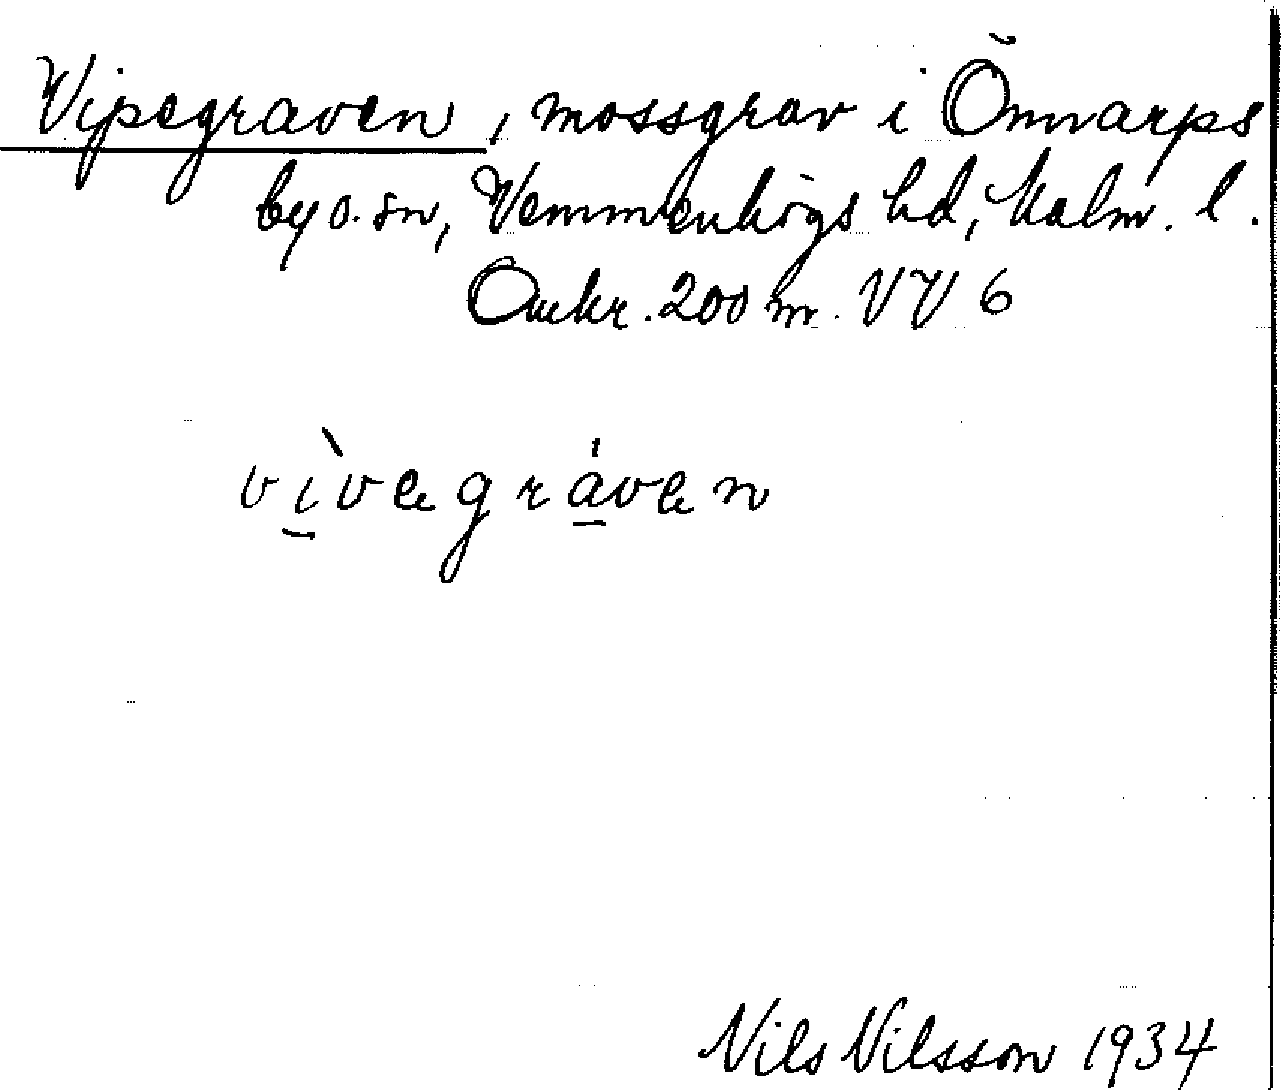 Vipegraven, mossgrav i Önnarps
by o. sn, Vemmenhögs hd, Malm. l.
Omkr. 200 m. VV 6
vìvegráven
Nils Nilsson 1934